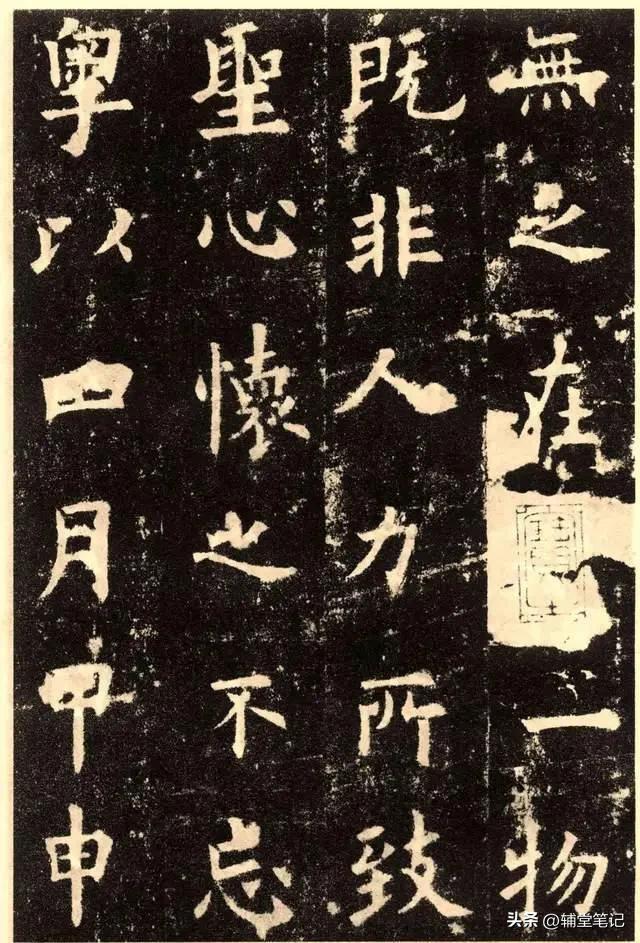 無之在一物
既非人力所致
聖心懷之不忘
粵以四月甲申
头条 @辅堂笔记